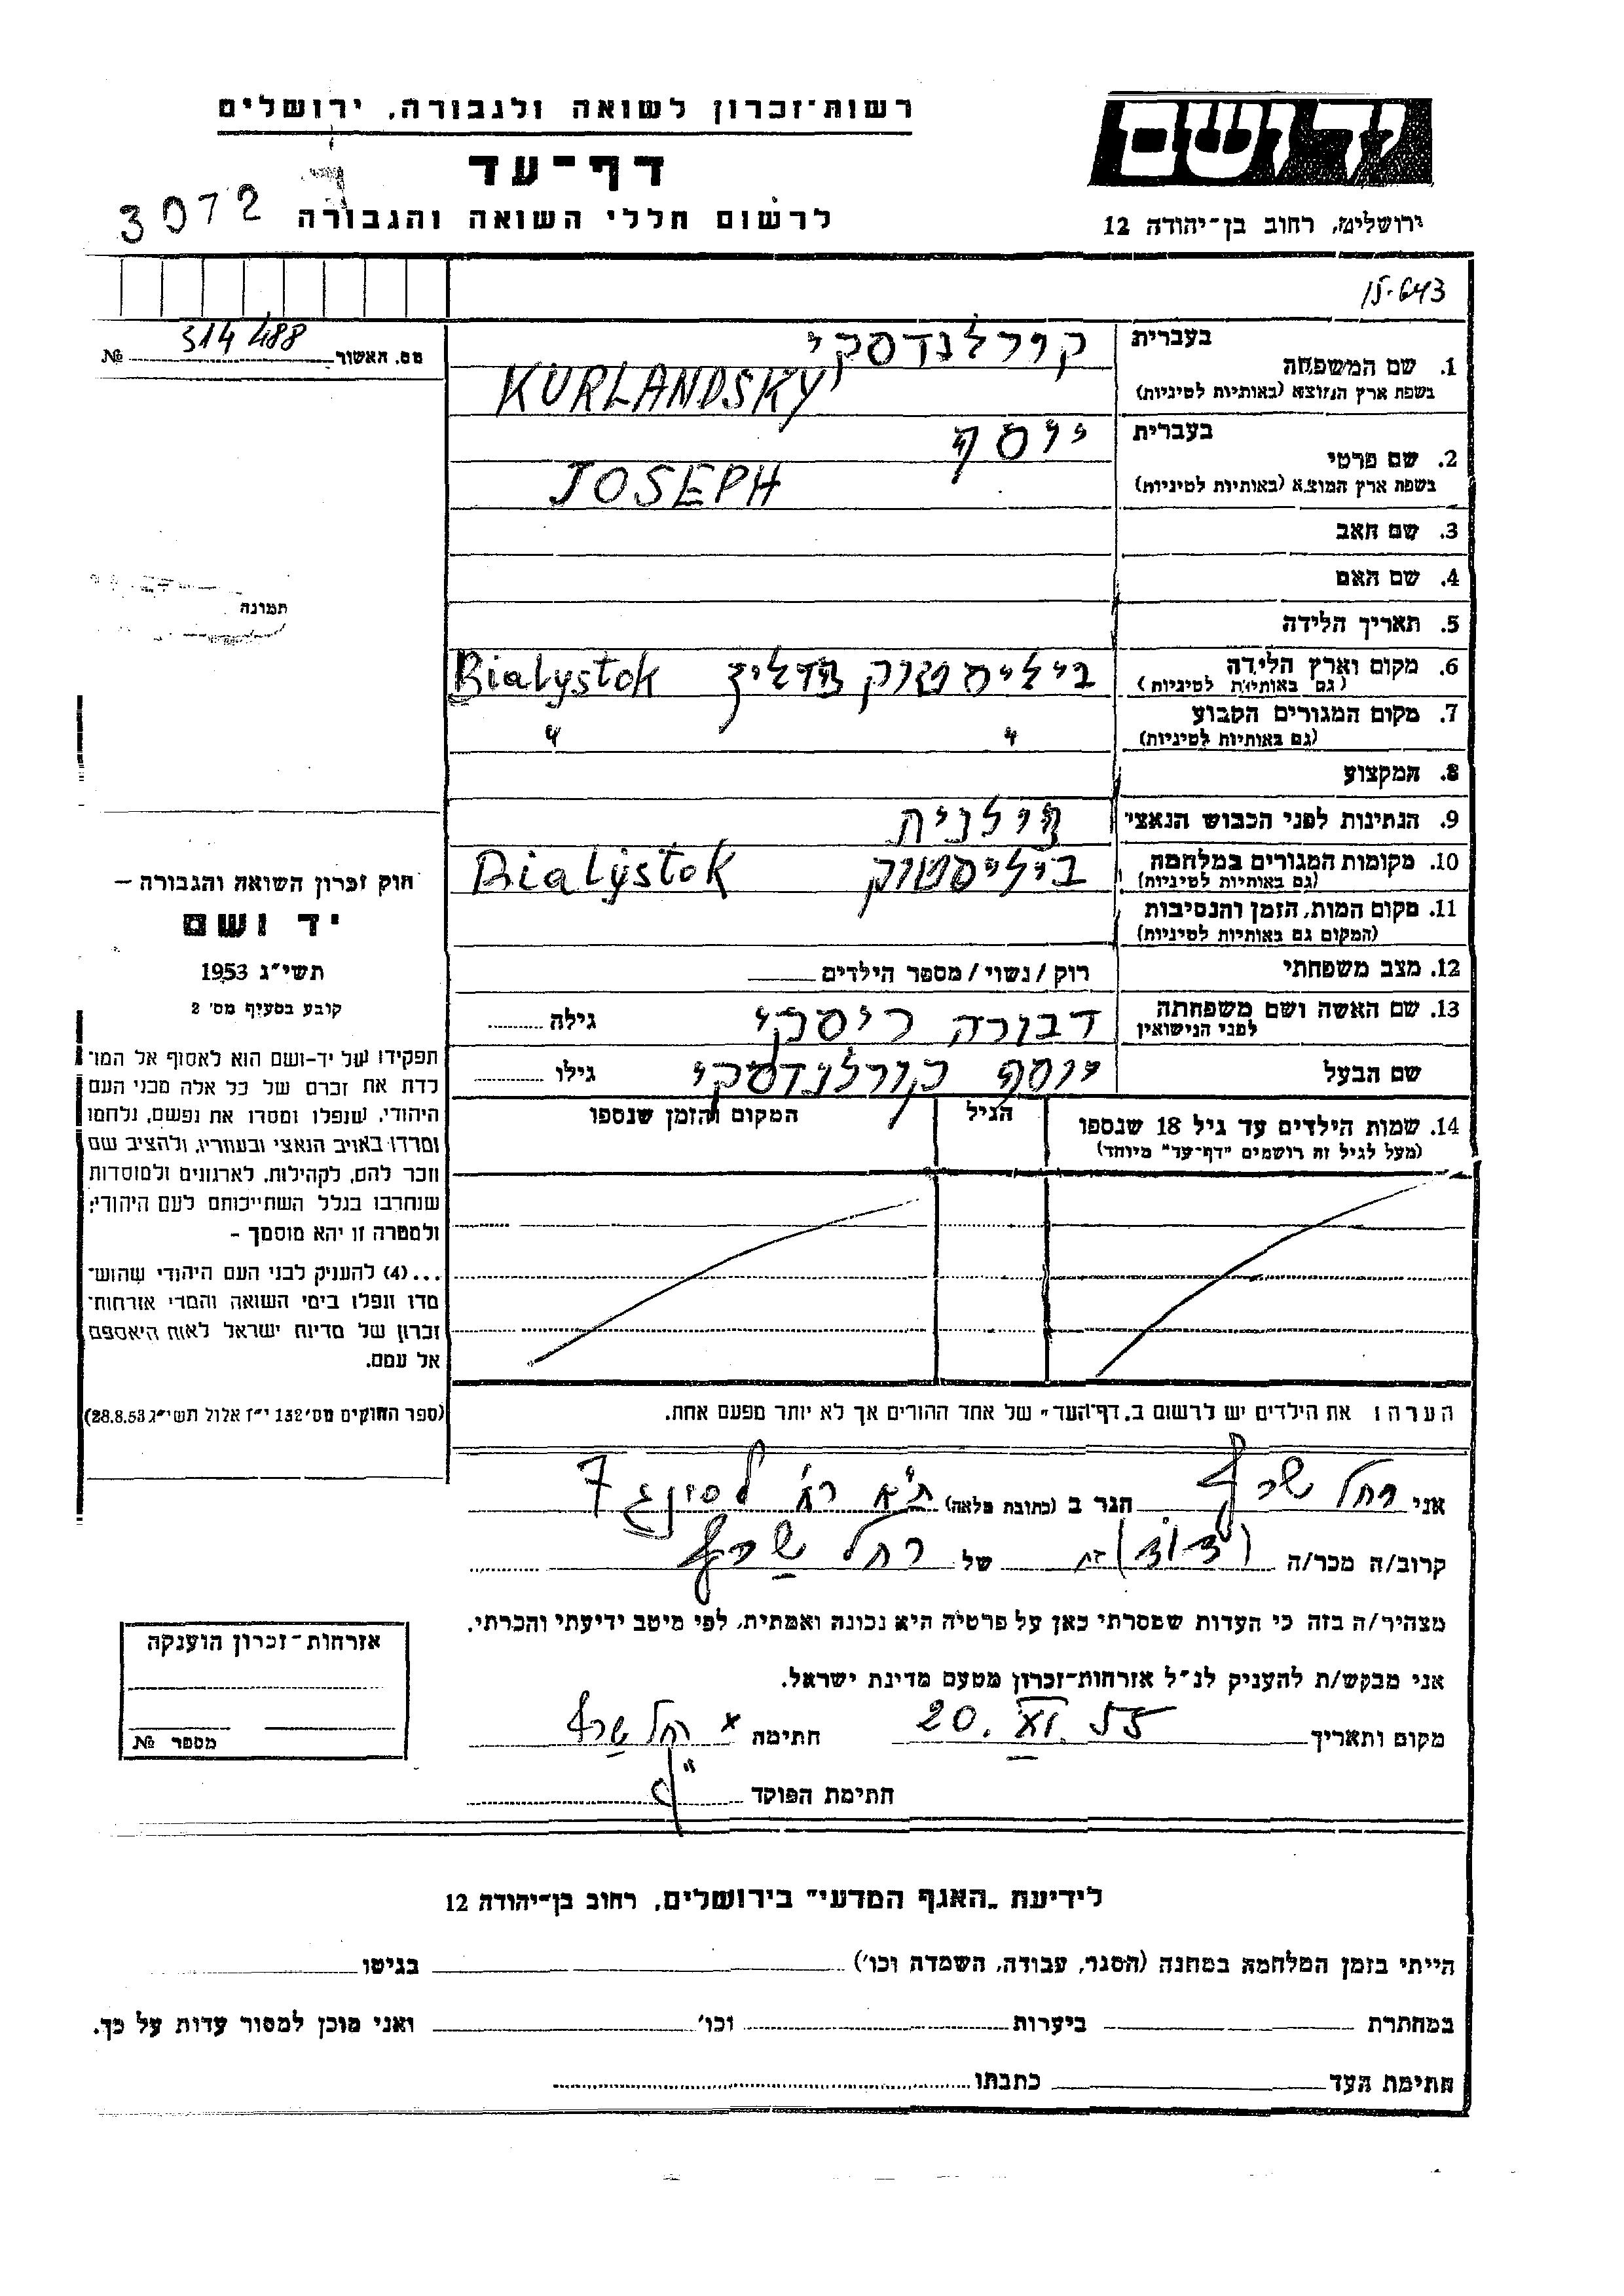 רשות-זכרון לשואה ולגבורה, ירושלים
יד ושם
דף-עד
לרשום חללי השואה והגבורה
3072
ירושלים, רחוב בן-יהודה 12
15-643
מס. האשור 314488 №
1. שם המשפחה
בעברית קורלנדסקי
בשפת ארץ המוצא (באותיות לטיניות) KURLANDSKY
2. שם פרטי
בעברית יוסף
בשפת ארץ המוצא (באותיות לטיניות) JOSEPH
3. שם האב
4. שם האם
5. תאריך הלידה
6. מקום וארץ הלידה (גם באותיות לטיניות) ביליסטוק Bialystok
7. מקום המגורים הקבוע (גם באותיות לטיניות) " "
8. המקצוע
9. הנתינות לפני הכבוש הנאצי פולנית
10. מקומות המגורים במלחמה (גם באותיות לטיניות) ביליסטוק Bialystok
11. מקום המות, הזמן והנסיבות (המקום גם באותיות לטיניות)
12. מצב משפחתי רוק/נשוי/מספר הילדים
13. שם האשה ושם משפחתה לפני הנישואין דבורה ריסקי גילה
שם הבעל יוסף קורלנדסקי גילו
14. שמות הילדים עד גיל 18 שנספו
(מעל לגיל זה רושמים "דף-עד" מיוחד)
הגיל
המקום והזמן שנספו
תמונה
חוק זכרון השואה והגבורה –
יד ושם
תשי"ג 1953
קובע בסעיף מס' 2
תפקידו של יד-ושם הוא לאסוף אל המו־
לדת את זכרם של כל אלה מבני העם
היהודי, שנפלו ומסרו את נפשם, נלחמו
ומרדו באויב הנאצי ובעוזריו, ולהציב שם
וזכר להם, לקהילות, לארגונים ולמוסדות
שנחרבו בגלל השתייכותם לעם היהודי;
ולמטרה זו יהא מוסמך –
...(4) להעניק לבני העם היהודי שהוש־
מדו ונפלו בימי השואה והמרי אזרחות־
זכרון של מדינת ישראל לאות היאספם
אל עמם.
(ספר החוקים מס' 132 י"ז אלול תשי"ג 28.8.53)
הערה: את הילדים יש לרשום ב"דף־העד" של אחד ההורים אך לא יותר מפעם אחת.
אני רחל שרף הגר ב (כתובת מלאה) ת"א רח' לסינג 7
קרוב/ה מכר/ה של רחל שרף
מצהיר/ה בזה כי העדות שמסרתי כאן על פרטיה היא נכונה ואמתית, לפי מיטב ידיעתי והכרתי.
אני מבקש/ת להעניק לנ"ל אזרחות-זכרון מטעם מדינת ישראל.
מקום ותאריך 20. XI. 55 חתימה x רחל שרף
חתימת הפוקד
אזרחות-זכרון הוענקה
מספר №
לידיעת "האגף המדעי" בירושלים, רחוב בן-יהודה 12
הייתי בזמן המלחמה במחנה (הסגר, עבודה, השמדה וכו') בגיטו
במחתרת ביערות וכו' ואני מוכן למסור עדות על כך.
חתימת העד כתבתו